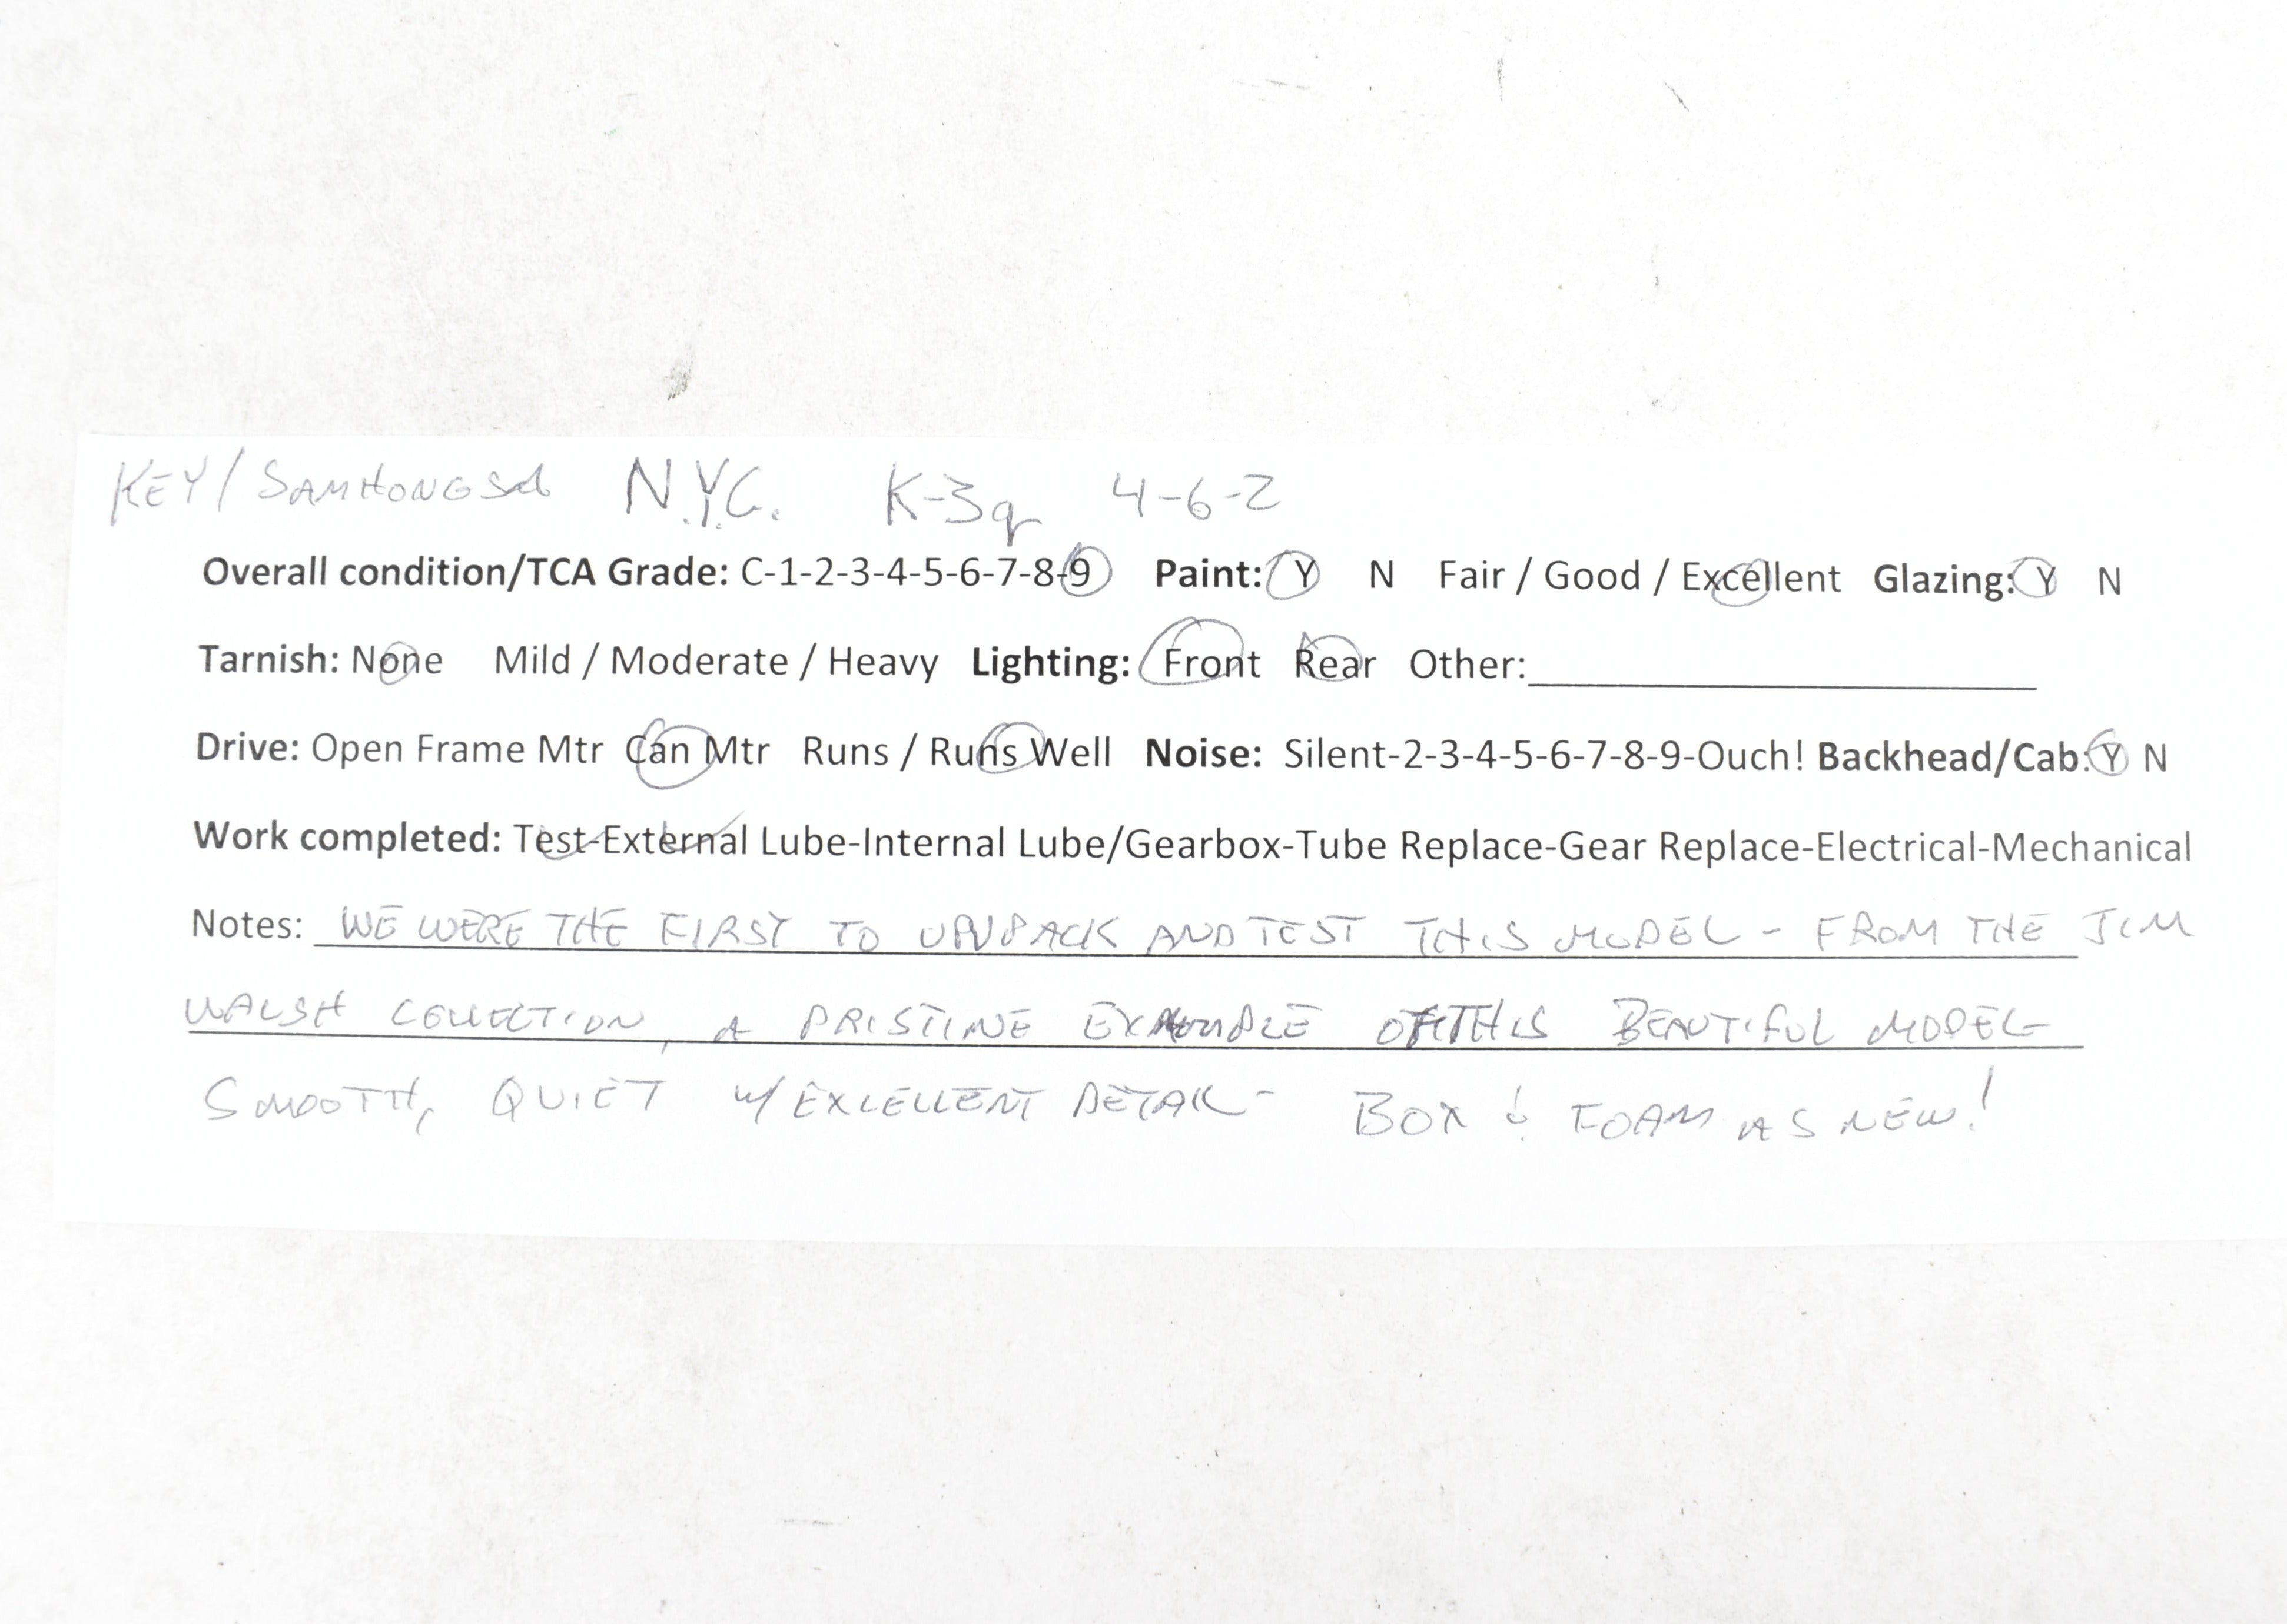 KEY/SAMHONGSA N.Y.C. K-3q 4-6-2
Overall condition/TCA Grade: C-1-2-3-4-5-6-7-8-9 Paint: Y N Fair / Good / Excellent Glazing: Y N
Tarnish: None Mild / Moderate / Heavy Lighting: Front Rear Other:
Drive: Open Frame Mtr Can Mtr Runs / Runs Well Noise: Silent-2-3-4-5-6-7-8-9-Ouch! Backhead/Cab: Y N
Work completed: Test-External Lube-Internal Lube/Gearbox-Tube Replace-Gear Replace-Electrical-Mechanical
Notes: WE WERE THE FIRST TO UNPACK AND TEST THIS MODEL - FROM THE JIM
WALSH COLLECTION, A PRISTINE EXAMPLE OF THIS BEAUTIFUL MODEL
SMOOTH, QUIET w/ EXCELLENT DETAIL - BOX & FOAM AS NEW!